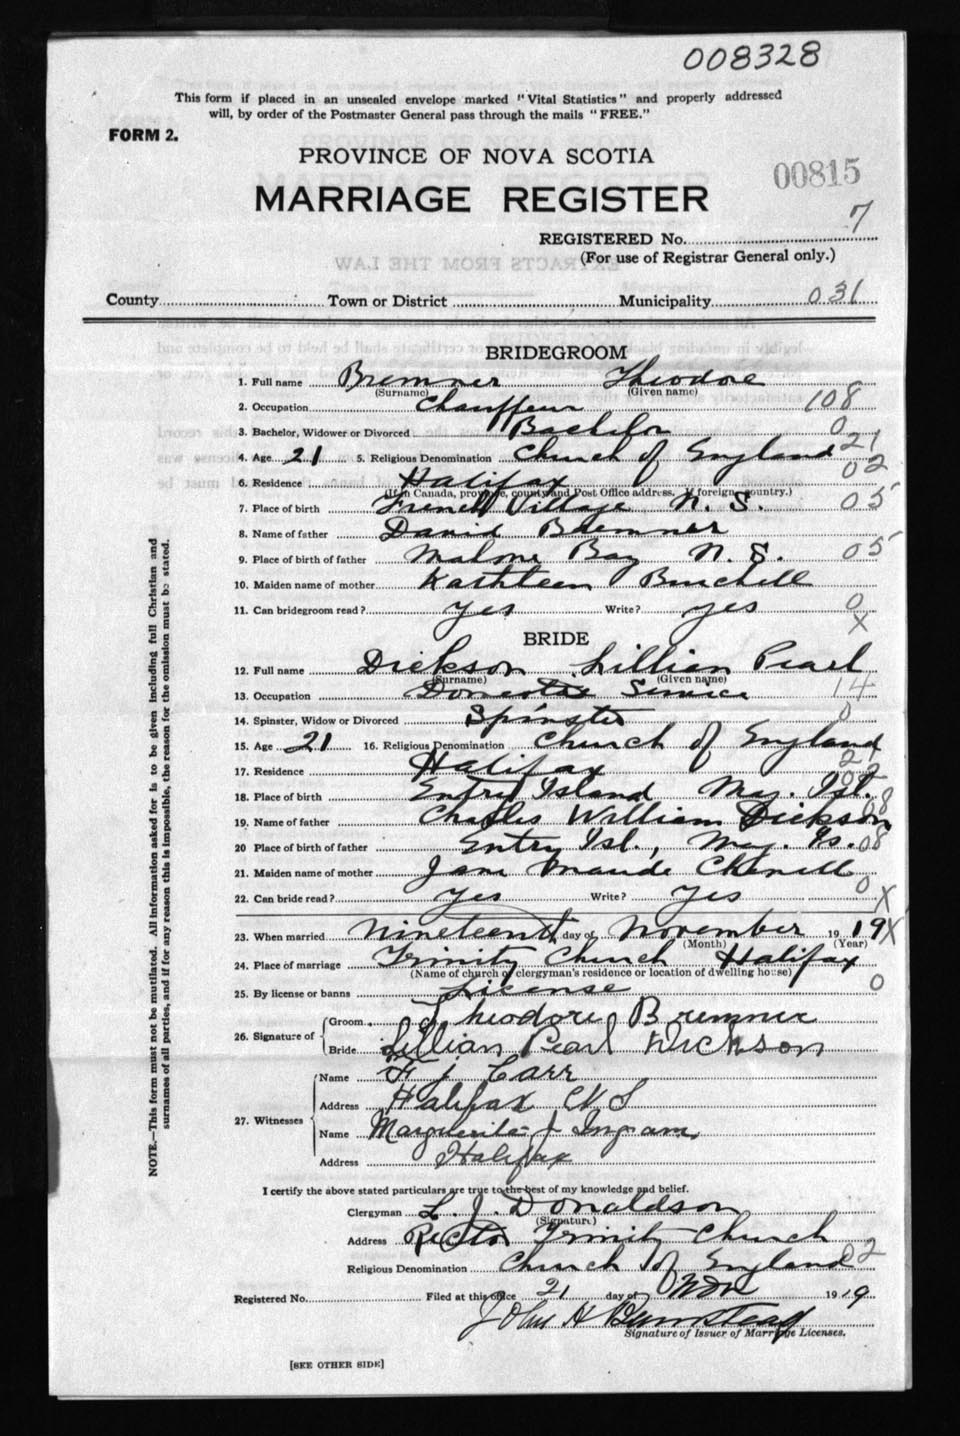 008328
This form if placed in an unsealed envelope marked "Vital Statistics" and properly addressed
will, by order of the Postmaster General pass through the mails "FREE."
FORM 2.
PROVINCE OF NOVA SCOTIA
00815
MARRIAGE REGISTER
REGISTERED No. 7
(For use of Registrar General only.)
County Town or District Municipality 031
BRIDEGROOM
1. Full name Bremner Theodore
(Surname) (Given name)
2. Occupation Chauffeur 108
3. Bachelor, Widower or Divorced Bachelor 0
4. Age 21 5. Religious Denomination Church of England 21
6. Residence Halifax 02
(If in Canada, province, county and Post Office address. If foreign, country.)
7. Place of birth French Village N. S. 05
8. Name of father David Bremner
9. Place of birth of father Mahone Bay N. S. 05
10. Maiden name of mother Kathleen Burchell
11. Can bridegroom read? yes Write? yes 0
X
BRIDE
12. Full name Dickson Lillian Pearl
(Surname) (Given name)
13. Occupation Domestic Service 14
14. Spinster, Widow or Divorced Spinster 0
15. Age 21 16. Religious Denomination Church of England
17. Residence Halifax
18. Place of birth Entry Island Mag. Isl.
19. Name of father Charles William Dickson 08
20 Place of birth of father Entry Isl., Mag. Is. 08
21. Maiden name of mother Jane Maude Chenell
22. Can bride read? Yes Write? Yes 0
X
23. When married Nineteenth day of November 19 19 X
(Month) (Year)
24. Place of marriage Trinity Church Halifax
(Name of church of clergyman's residence or location of dwelling house)
25. By license or banns License 0
26. Signature of Groom Theodore Bremner
Bride Lillian Pearl Dickson
27. Witnesses Name F J Carr
Address Halifax N S
Name Marguerite J Ingram
Address Halifax
I certify the above stated particulars are true to the best of my knowledge and belief.
Clergyman L. J. Donaldson
(Signature)
Address Rector Trinity Church
Religious Denomination Church of England 02
Registered No. Filed at this office 21 day of Nov 19 19
John H Barnstead
Signature of Issuer of Marriage Licenses.
[SEE OTHER SIDE]
NOTE.—This form must not be mutilated. All information asked for is to be given including full Christian and
surnames of all parties, and if for any reason this is impossible, the reason for the omission must be stated.